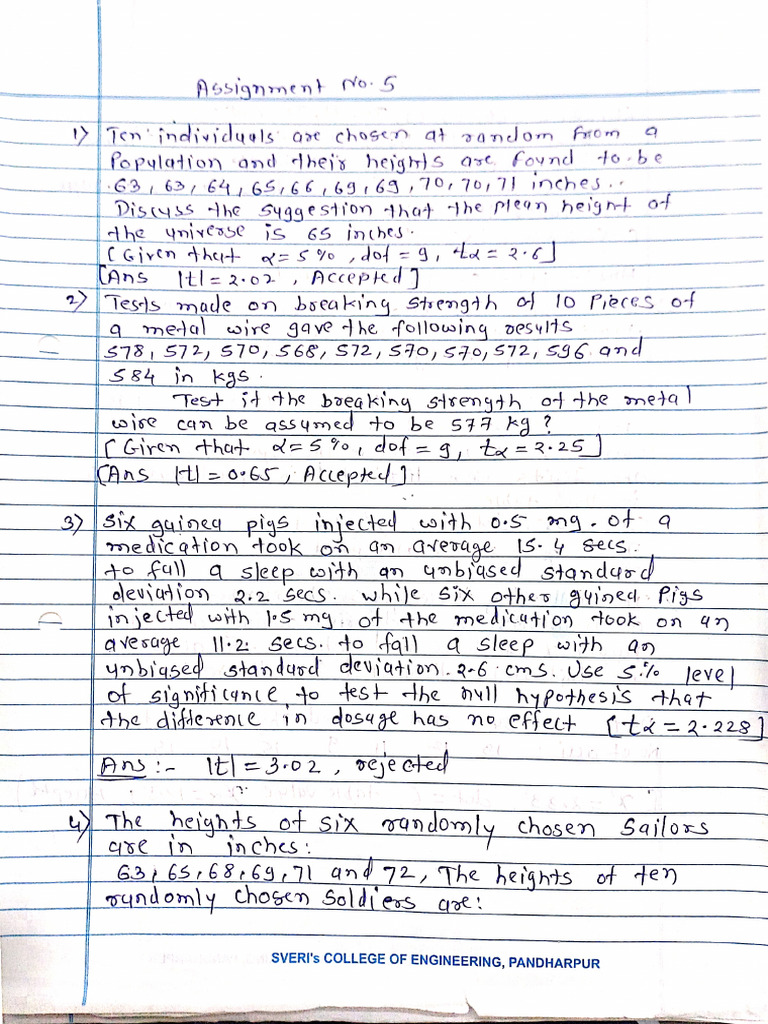 Assignment No. 5
1) Ten individuals are chosen at random from a
Population and their heights are found to be
63, 63, 64, 65, 66, 69, 69, 70, 70, 71 inches.
Discuss the suggestion that the Mean height of
the universe is 65 inches.
[Given that α = 5%, dof = 9, tα = 2.6]
[Ans |t| = 2.02, Accepted]
2) Tests made on breaking strength of 10 Pieces of
a metal wire gave the following results
578, 572, 570, 568, 572, 570, 570, 572, 596 and
584 in kgs.
Test if the breaking strength of the metal
wire can be assumed to be 577 kg?
[Given that α = 5%, dof = 9, tα = 2.25]
[Ans |t| = 0.65, Accepted]
3) Six guinea pigs injected with 0.5 mg. of a
medication took on an average 15.4 secs.
to fall a sleep with an unbiased standard
deviation 2.2 secs. while six other guinea Pigs
injected with 1.5 mg. of the medication took on an
average 11.2 secs. to fall a sleep with an
unbiased standard deviation 2.6 cms. Use 5% level
of significance to test the null hypothesis that
the difference in dosage has no effect [tα = 2.228]
Ans :- |t| = 3.02, rejected
4) The heights of six randomly chosen Sailors
are in inches:
63, 65, 68, 69, 71 and 72, The heights of ten
randomly chosen soldiers are:
SVERI's COLLEGE OF ENGINEERING, PANDHARPUR